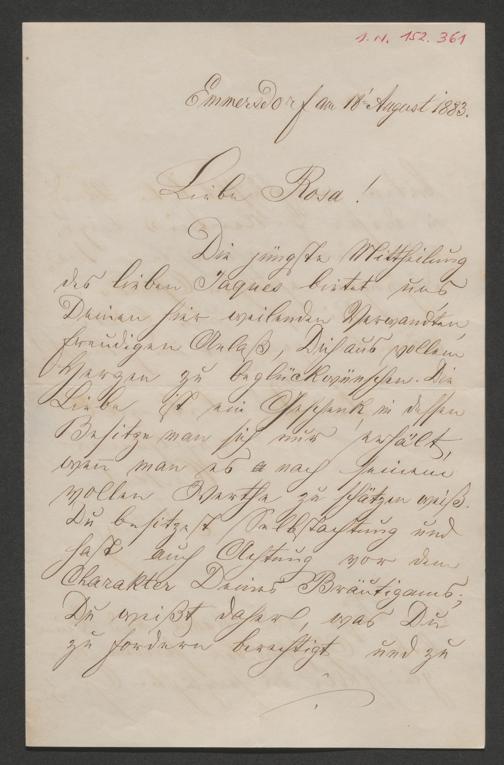 I. N. 152.361
Emmersdorf am 18' August 1883.
Liebe Rosa!
Die jüngste Mittheilung
des lieben Jaques bietet uns,
Deinen hier weilenden Verwandten,
freudigen Anlaß, Dich aus vollem
Herzen zu beglückwünschen. Die
Liebe ist ein Geschenk, in dessen
Besitze man sich nur erhält,
wen man es nach seinem
vollen Werthe zu schätzen weiß.
Du besitzest Selbstachtung und
hast auch Achtung vor dem
Charakter Deines Bräutigams;
Du weißt daher, was Du
zu fordern berechtigt und zu